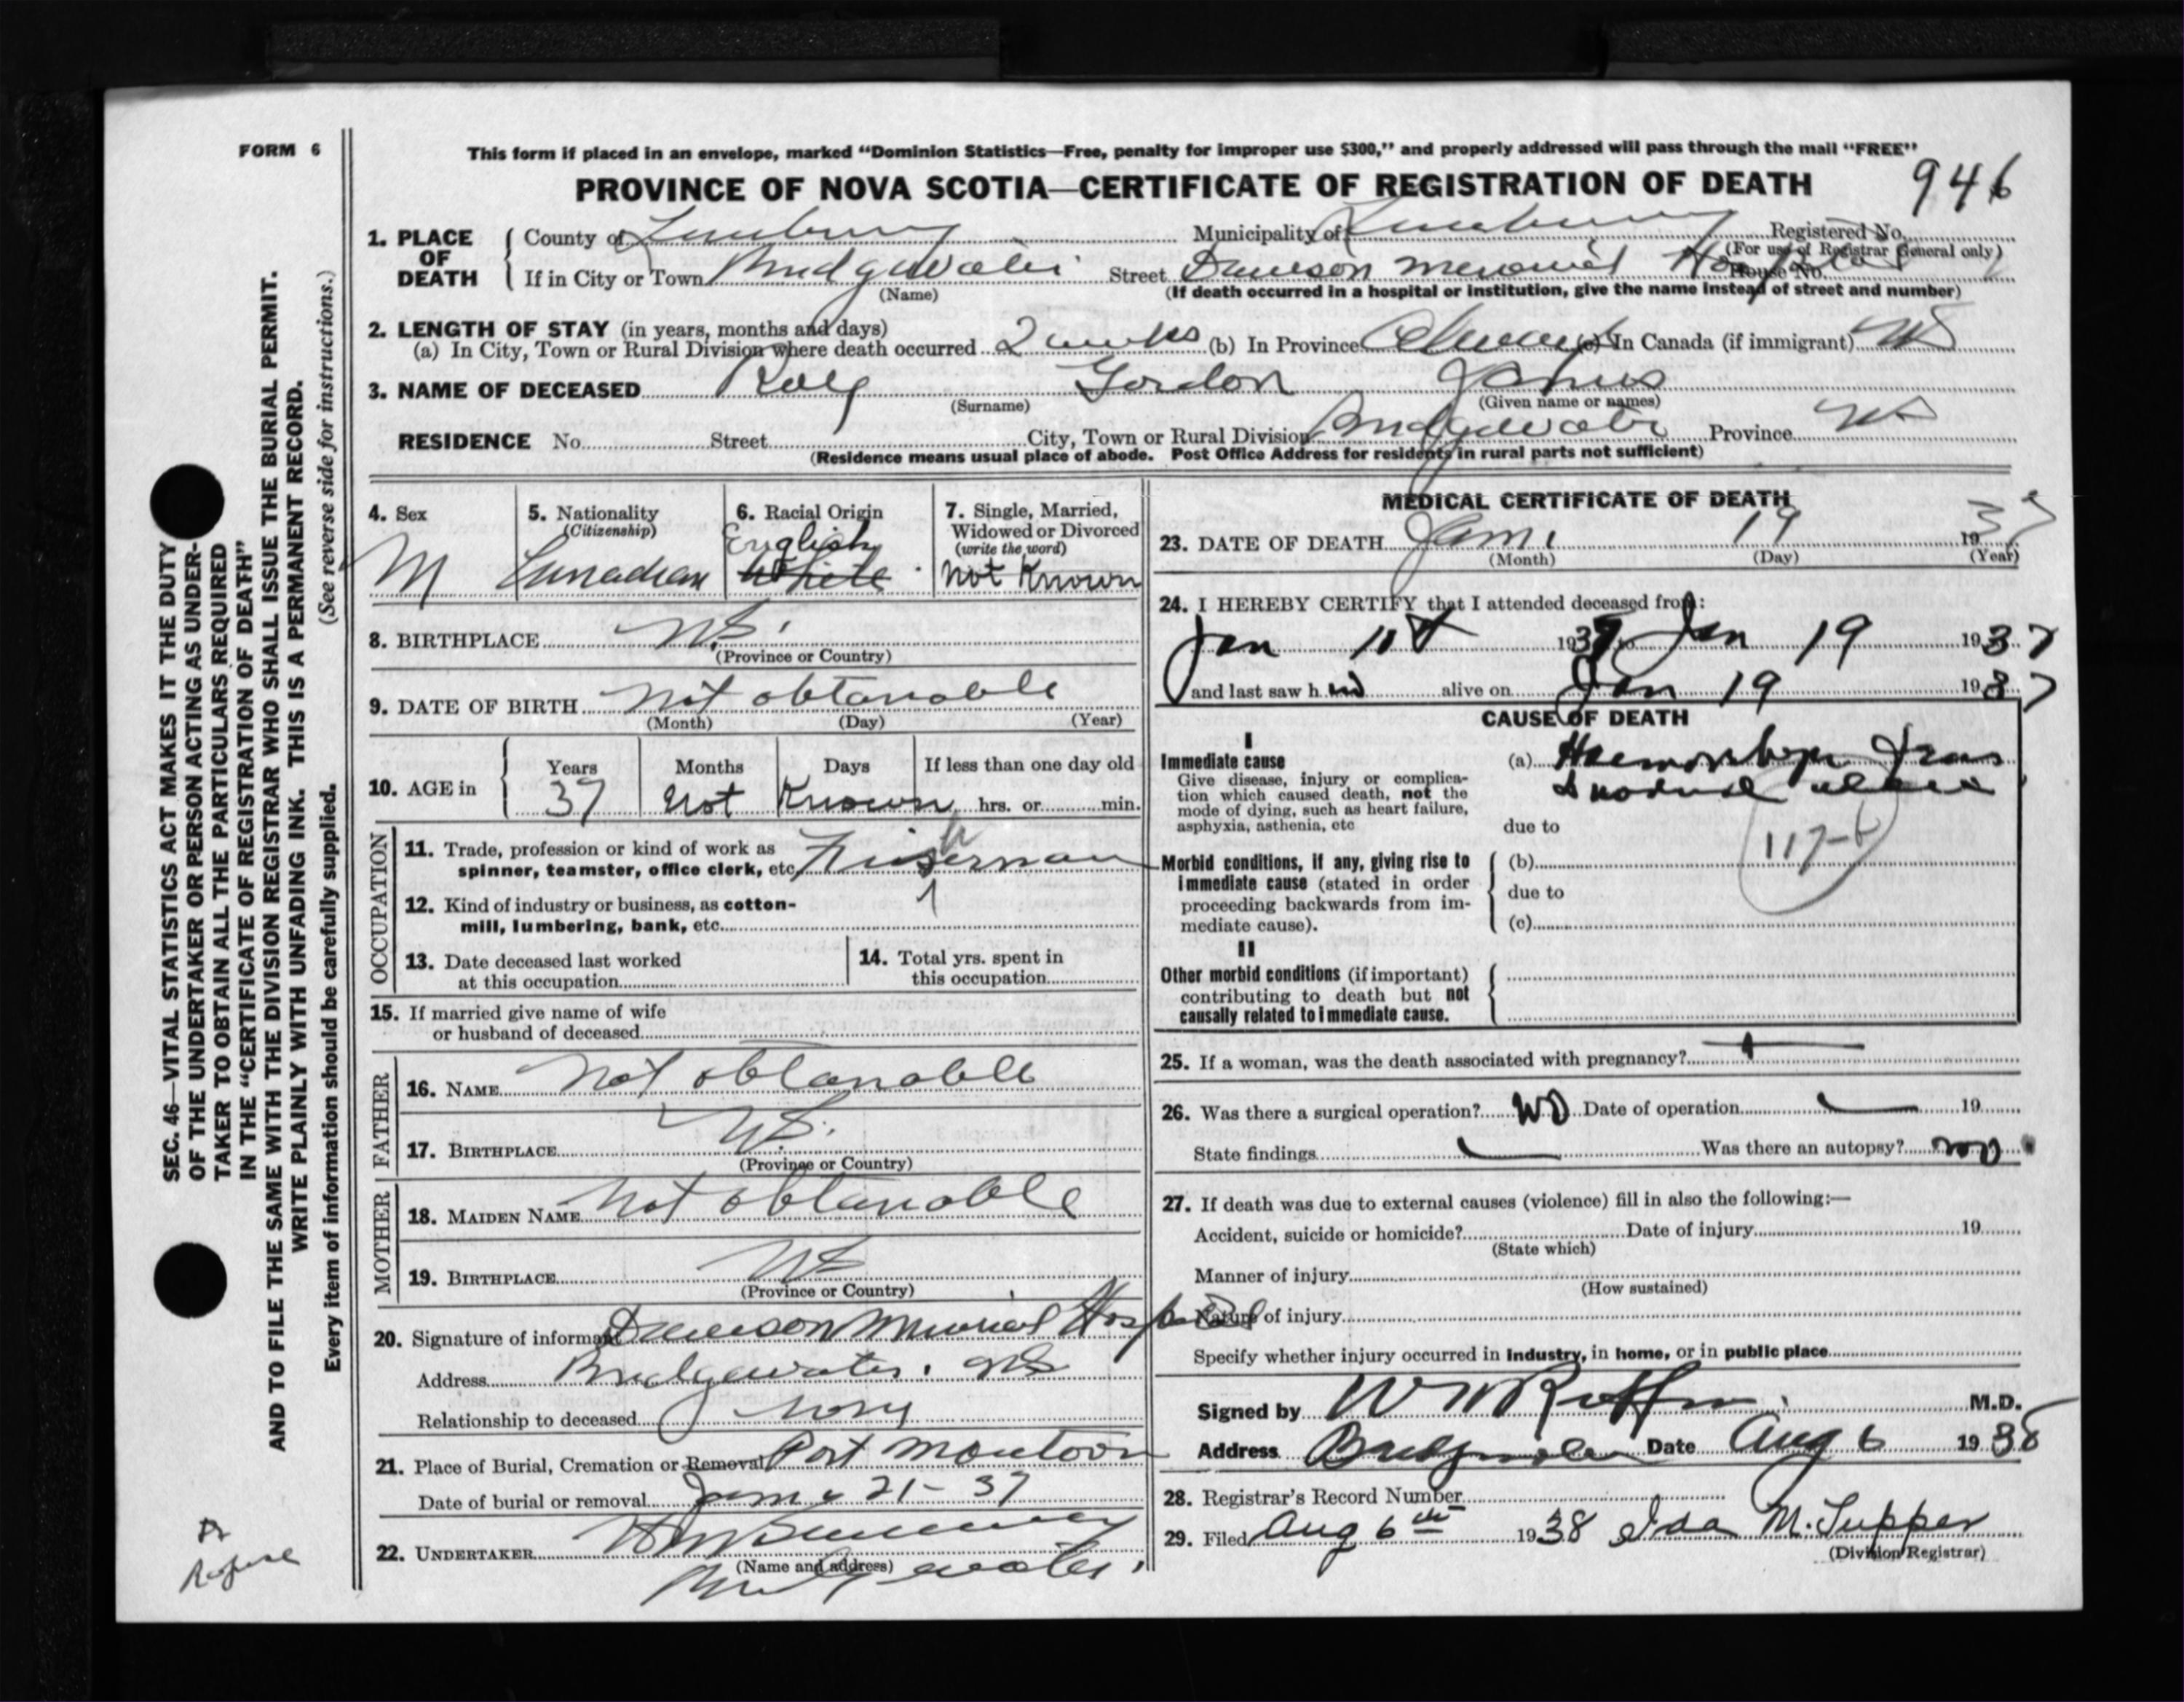 FORM 6
This form if placed in an envelope, marked "Dominion Statistics—Free, penalty for improper use $300," and properly addressed will pass through the mail "FREE"
PROVINCE OF NOVA SCOTIA—CERTIFICATE OF REGISTRATION OF DEATH
946
1. PLACE OF DEATH
County of Lunenburg Municipality of Lunenburg Registered No.
(For use of Registrar General only)
If in City or Town Bridgewater Street Dawson Memorial Hospital House No.
(Name)
(If death occurred in a hospital or institution, give the name instead of street and number)
2. LENGTH OF STAY (in years, months and days)
(a) In City, Town or Rural Division where death occurred 2 weeks (b) In Province Always (c) In Canada (if immigrant) NS
3. NAME OF DECEASED Roly Gordon James
(Surname) (Given name or names)
RESIDENCE No. Street City, Town or Rural Division Bridgewater Province NS
(Residence means usual place of abode. Post Office Address for residents in rural parts not sufficient)
4. Sex
M
5. Nationality
(Citizenship)
Canadian
6. Racial Origin
English
White
7. Single, Married, Widowed or Divorced
(write the word)
Not Known
8. BIRTHPLACE N.S.
(Province or Country)
9. DATE OF BIRTH Not obtanable
(Month) (Day) (Year)
10. AGE in
Years Months Days If less than one day old
37 Not Known hrs. or min.
OCCUPATION
11. Trade, profession or kind of work as
spinner, teamster, office clerk, etc. Fisherman
h
12. Kind of industry or business, as cotton-
mill, lumbering, bank, etc.
13. Date deceased last worked
at this occupation
14. Total yrs. spent in
this occupation
15. If married give name of wife
or husband of deceased
FATHER
16. NAME Not obtanable
17. BIRTHPLACE N.S.
(Province or Country)
MOTHER
18. MAIDEN NAME Not obtanable
19. BIRTHPLACE NS
(Province or Country)
20. Signature of informant Dawson Memorial Hospital
Address Bridgewater. NS
Relationship to deceased None
21. Place of Burial, Cremation or Removal Port Moutoon
Date of burial or removal Jan. 21-37
22. UNDERTAKER
(Name and address)
Bridgewater.
MEDICAL CERTIFICATE OF DEATH
23. DATE OF DEATH Jan. 19 1937
(Month) (Day) (Year)
24. I HEREBY CERTIFY that I attended deceased from:
Jan 1937 to Jan 19 1937
and last saw h im alive on Jan 19 1937
CAUSE OF DEATH
I
Immediate cause
Give disease, injury or complica-
tion which caused death, not the
mode of dying, such as heart failure,
asphyxia, asthenia, etc
(a) Haemorrhage from
duodenal ulcer
due to
117-b
Morbid conditions, if any, giving rise to
immediate cause (stated in order
proceeding backwards from im-
mediate cause).
(b)
due to
(c)
II
Other morbid conditions (if important)
contributing to death but not
causally related to immediate cause.
25. If a woman, was the death associated with pregnancy?
26. Was there a surgical operation? No Date of operation 19
State findings Was there an autopsy? no
27. If death was due to external causes (violence) fill in also the following:—
Accident, suicide or homicide? Date of injury 19
(State which)
Manner of injury
(How sustained)
Nature of injury
Specify whether injury occurred in industry, in home, or in public place
Signed by M.D.
Address Bridgewater Date Aug 6 1938
28. Registrar's Record Number
29. Filed Aug 6th 1938 Ida M. Tupper
(Division Registrar)
SEC. 46—VITAL STATISTICS ACT MAKES IT THE DUTY
OF THE UNDERTAKER OR PERSON ACTING AS UNDER-
TAKER TO OBTAIN ALL THE PARTICULARS REQUIRED
IN THE "CERTIFICATE OF REGISTRATION OF DEATH"
AND TO FILE THE SAME WITH THE DIVISION REGISTRAR WHO SHALL ISSUE THE BURIAL PERMIT.
WRITE PLAINLY WITH UNFADING INK. THIS IS A PERMANENT RECORD.
Every item of information should be carefully supplied. (See reverse side for instructions.)